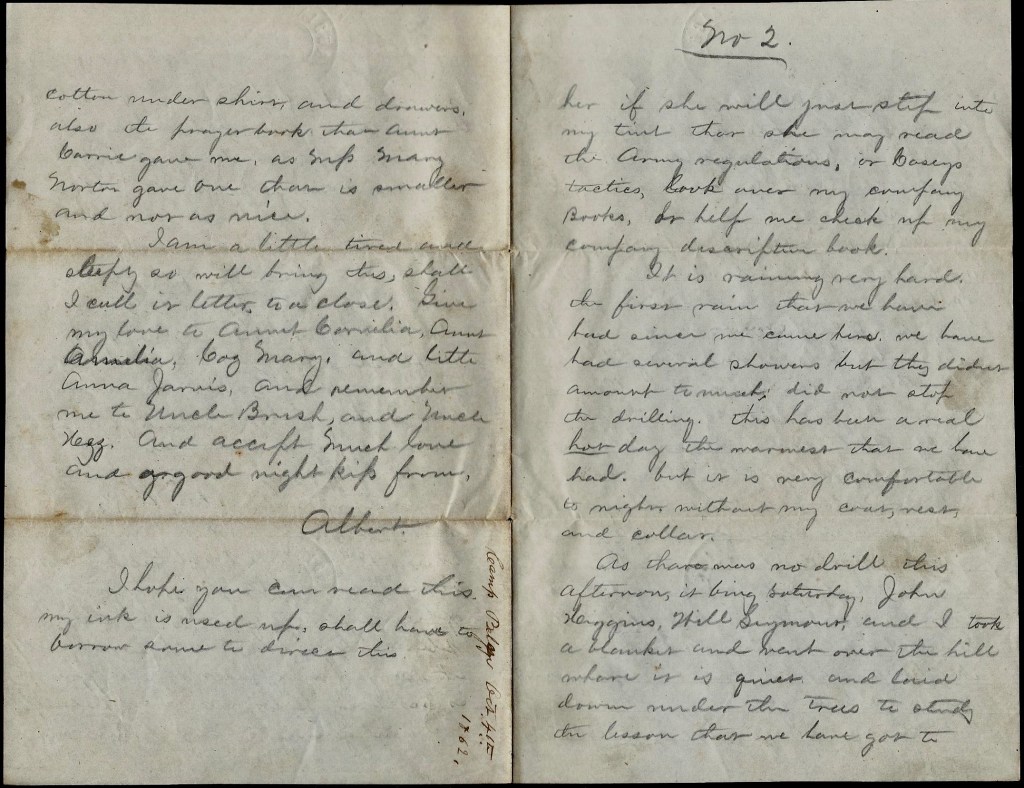 cotton under shirt, and drawers,
also the prayerbook that Aunt
Carrie gave me, as Miss Mary
Norton gave one than is smaller
and not as nice.
I am a little tired and
sleepy so will bring this, shall
I call it letter, to a close. Give
my love to Aunnt Cornelia, Aunt
Amelia, Coz Mary, and little
Anna Jarvis, and remember
me to Uncle Brush, and Uncle
Hez. And accept much love
and a good night kiss from,
Albert.
I hope you can read this.
my ink is used up, shall have to
borrow some to direct this
Camp Oct. 4th
1862,
No 2.
her if she will just step into
my tint that she may read
the Army regulations, or Caseys
tactics, look over my company
Books, or help me check up my
company discription book.
It is raining very hard.
the first rain that we have
had since we came here. we have
had several showers but they didnt
amount to much; did not stop
the drilling. this has been a real
hot day the warmest that we have
had. but it is very comfortable
to night without my coat, vest,
and collar.
As there was no drill this
afternoon, it bing Saturday, John
Higgins, Will Seymour, and I took
a blanket and went over the hill
where it is quiet and laid
down under the trees to study
the lesson that we have got to